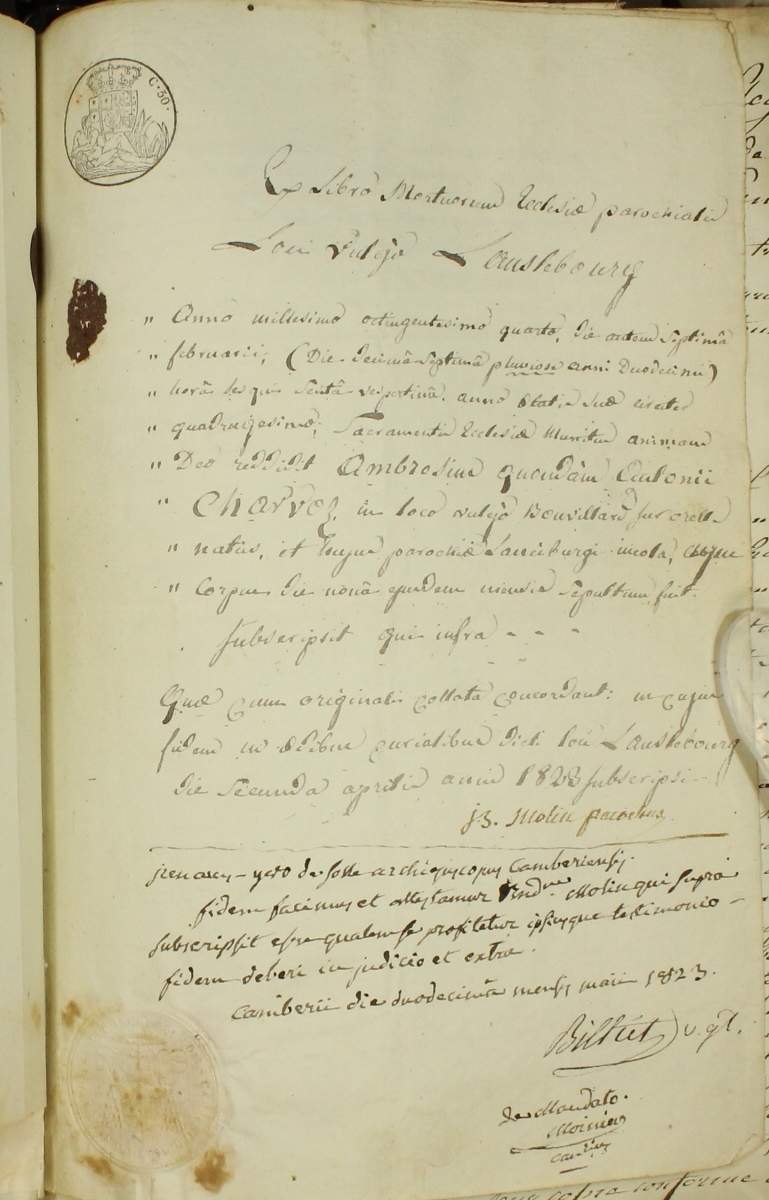 C. 50.
Ex Libro Mortuorum Ecclesiæ parochialis
Loci Vulgò Lanslebourg
" Anno millesimo octingentesimo quarto, die autem septimâ
" februarii, (Die decimâ septimâ pluviose anni Duodecimi)
" horâ sesqui sextâ vespertinâ, anno Ætatis suæ circiter
" quadragesimo, Sacramentis Ecclesiæ Munitus animam
" Deo reddidit Ambrosius quondàm Antonii
" Charvoz, in loco vulgò Bonvillard sur orelle
" natus, et hujus parochiæ Lanciburgi incola, cujus
" Corpus die nonâ ejusdem mensis sepultum fuit.
subscripsit qui infra - - -
Quæ cum originali collata concordant: in cujus
fidem in ædibus curialibus dicti loci Lanslebourg
die secunda aprilis anni 1823 subscripsi -
j. B. Molin parochus
yrenæus-yvo de Solle archiepiscopus Camberiensis.
fidem facimus et attestamur Rndum Molin qui supra
subscripsit esse qualem se profitetur ipsiusque testimonio -
fidem deberi in judicio et extra.
Camberii die duodecimâ mensis maii 1823.
Billiet v. gl.
de Mandato.
conforme